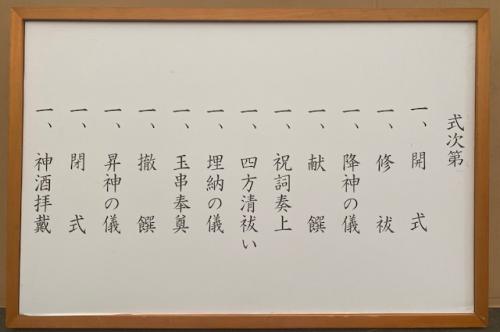 式次第
一、開式
一、修祓
一、降神の儀
一、献饌
一、祝詞奏上
一、四方清祓い
一、埋納の儀
一、玉串奉奠
一、撤饌
一、昇神の儀
一、閉式
一、神酒拝戴